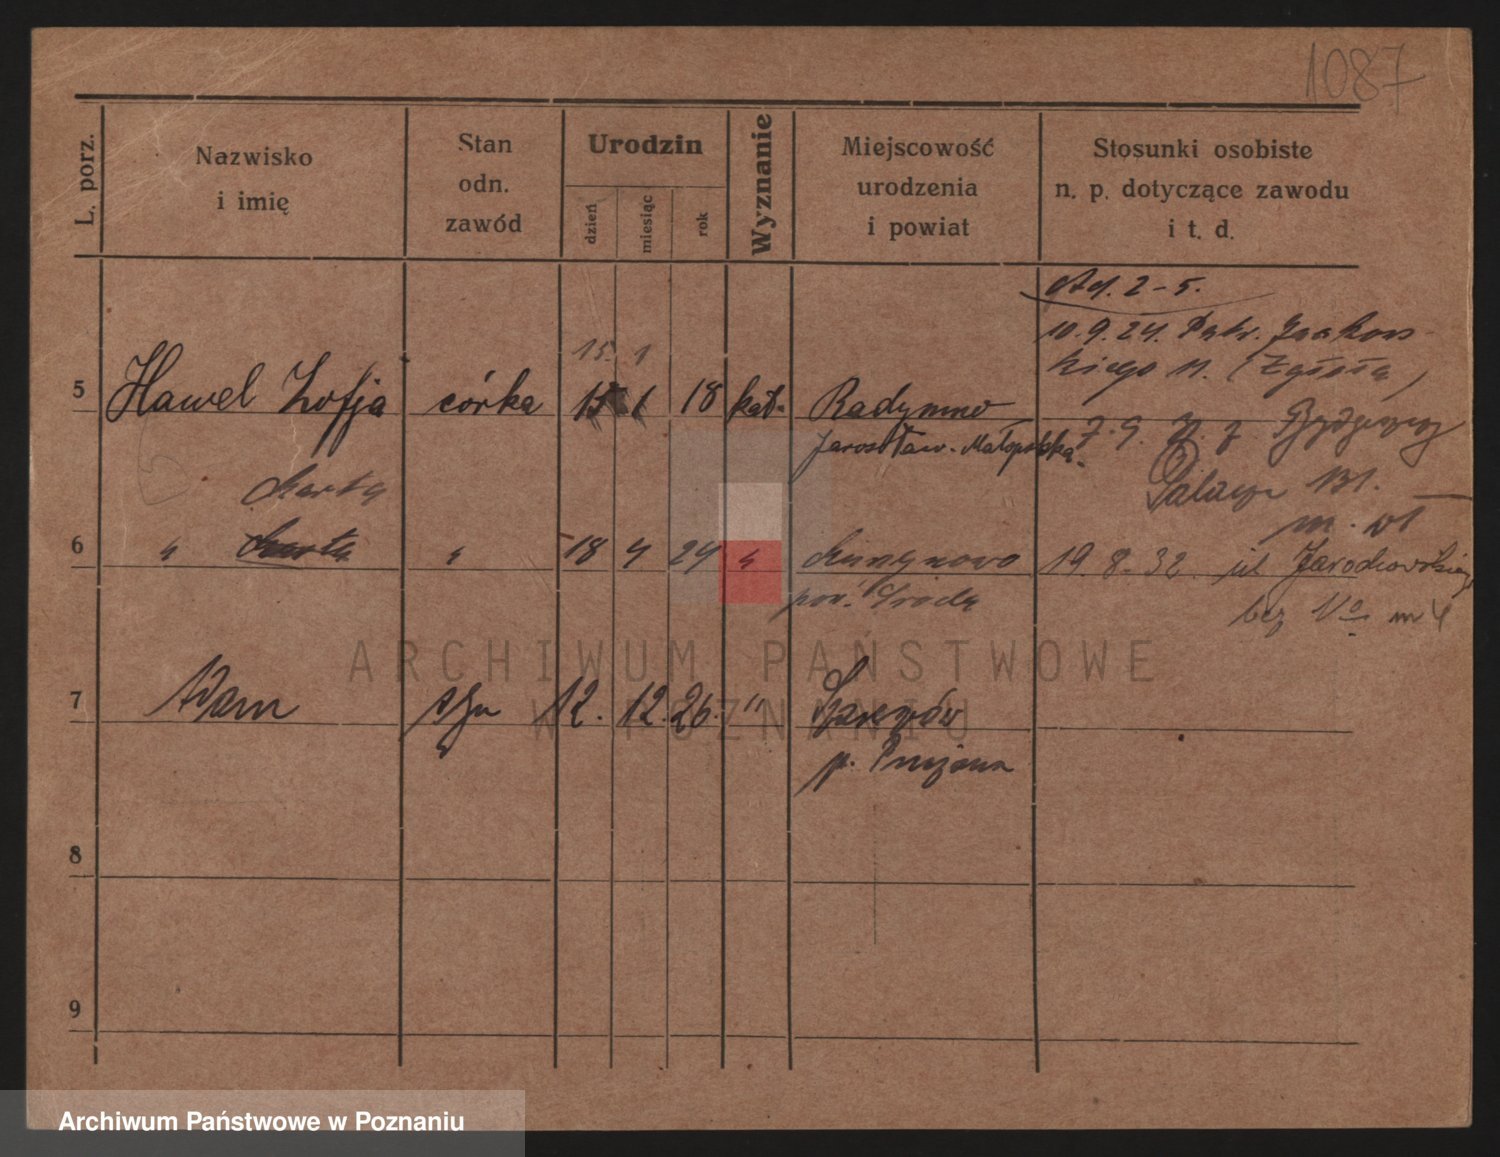 1087
L. porz.
Nazwisko
i imię
Stan
odn.
zawód
Urodzin
dzień
miesiąc
rok
Wyznanie
Miejscowość
urodzenia
i powiat
Stosunki osobiste
n. p. dotyczące zawodu
i t. d.
Ad. 2-5.
10.9.24.
kiego 11. (Zgłoła)
15. 1
5 Hawel Zofja córka 15 1 18 kat. Radymno
Jarosław-Małopolska.
7.9. z Bydgoszczy
131.
Marta
m.
6 " Marta " 18 4 24 "
pow. Środa
19.8.32. ul Jarochowskiego
bez No m 4
7 Adam syn 12. 12. 26. "
p.
8
9
ARCHIWUM PAŃSTWOWE
W POZNANIU
Archiwum Państwowe w Poznaniu